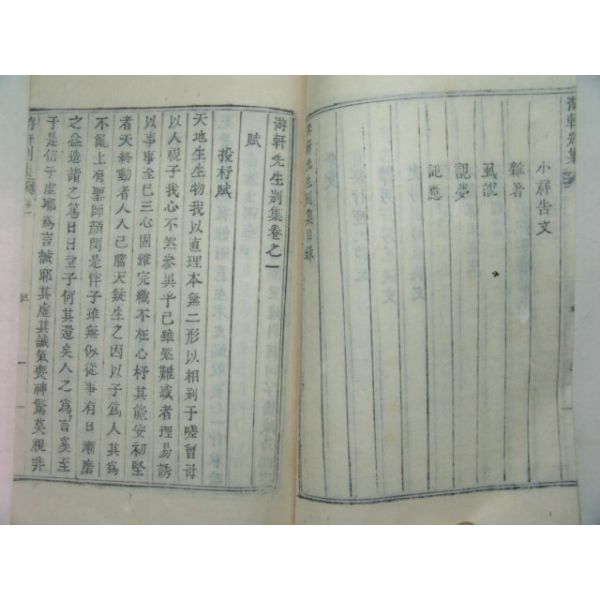 小祥告文
雜著
虱說
記夢
記惡
軒先生別集目錄
軒先生別集卷之一
賦
投杼賦
天地生生物我以直理本無二形以相別于嗟曾母
以人視子我心不然參與乎己雖然難惑者理易誘
以事事至巳三心固難完織不在心杼其能安初堅
者天終動者人人己膺天錠生之因以子爲人其爲
不亂上有聖師顏閔是伴子雖無似從事有日漸磨
之益造諸之篤日日望子何其還矣人之爲言奚至
于是信子虛耶爲言誠耶其虛其誠氣喪神驚莫視非